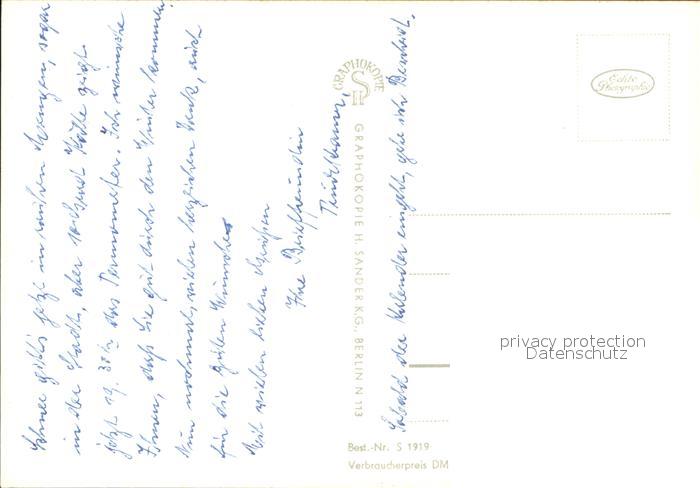 Schnee gibt's jetzt in rauhen Mengen, sogar
in der Stadt, aber Kälte zeigt
jetzt 19.30 h das Termometer. Ich wünsche
Ihnen, daß Sie gut durch den Winter kommen.
Nun nochmal vielen herzlichen Dank, auch
für die guten Wünsche
Mit vielen lieben Grüßen
Ihre Brieffreundin
Sobald der Kalender eingeht, gebe ich Bescheid.
GRAPHOKOPIE
H S
GRAPHOKOPIE H. SANDER K.G., BERLIN N 113
Best.-Nr. S 1919
Verbraucherpreis DM
Echte
Photographie
privacy protection
Datenschutz